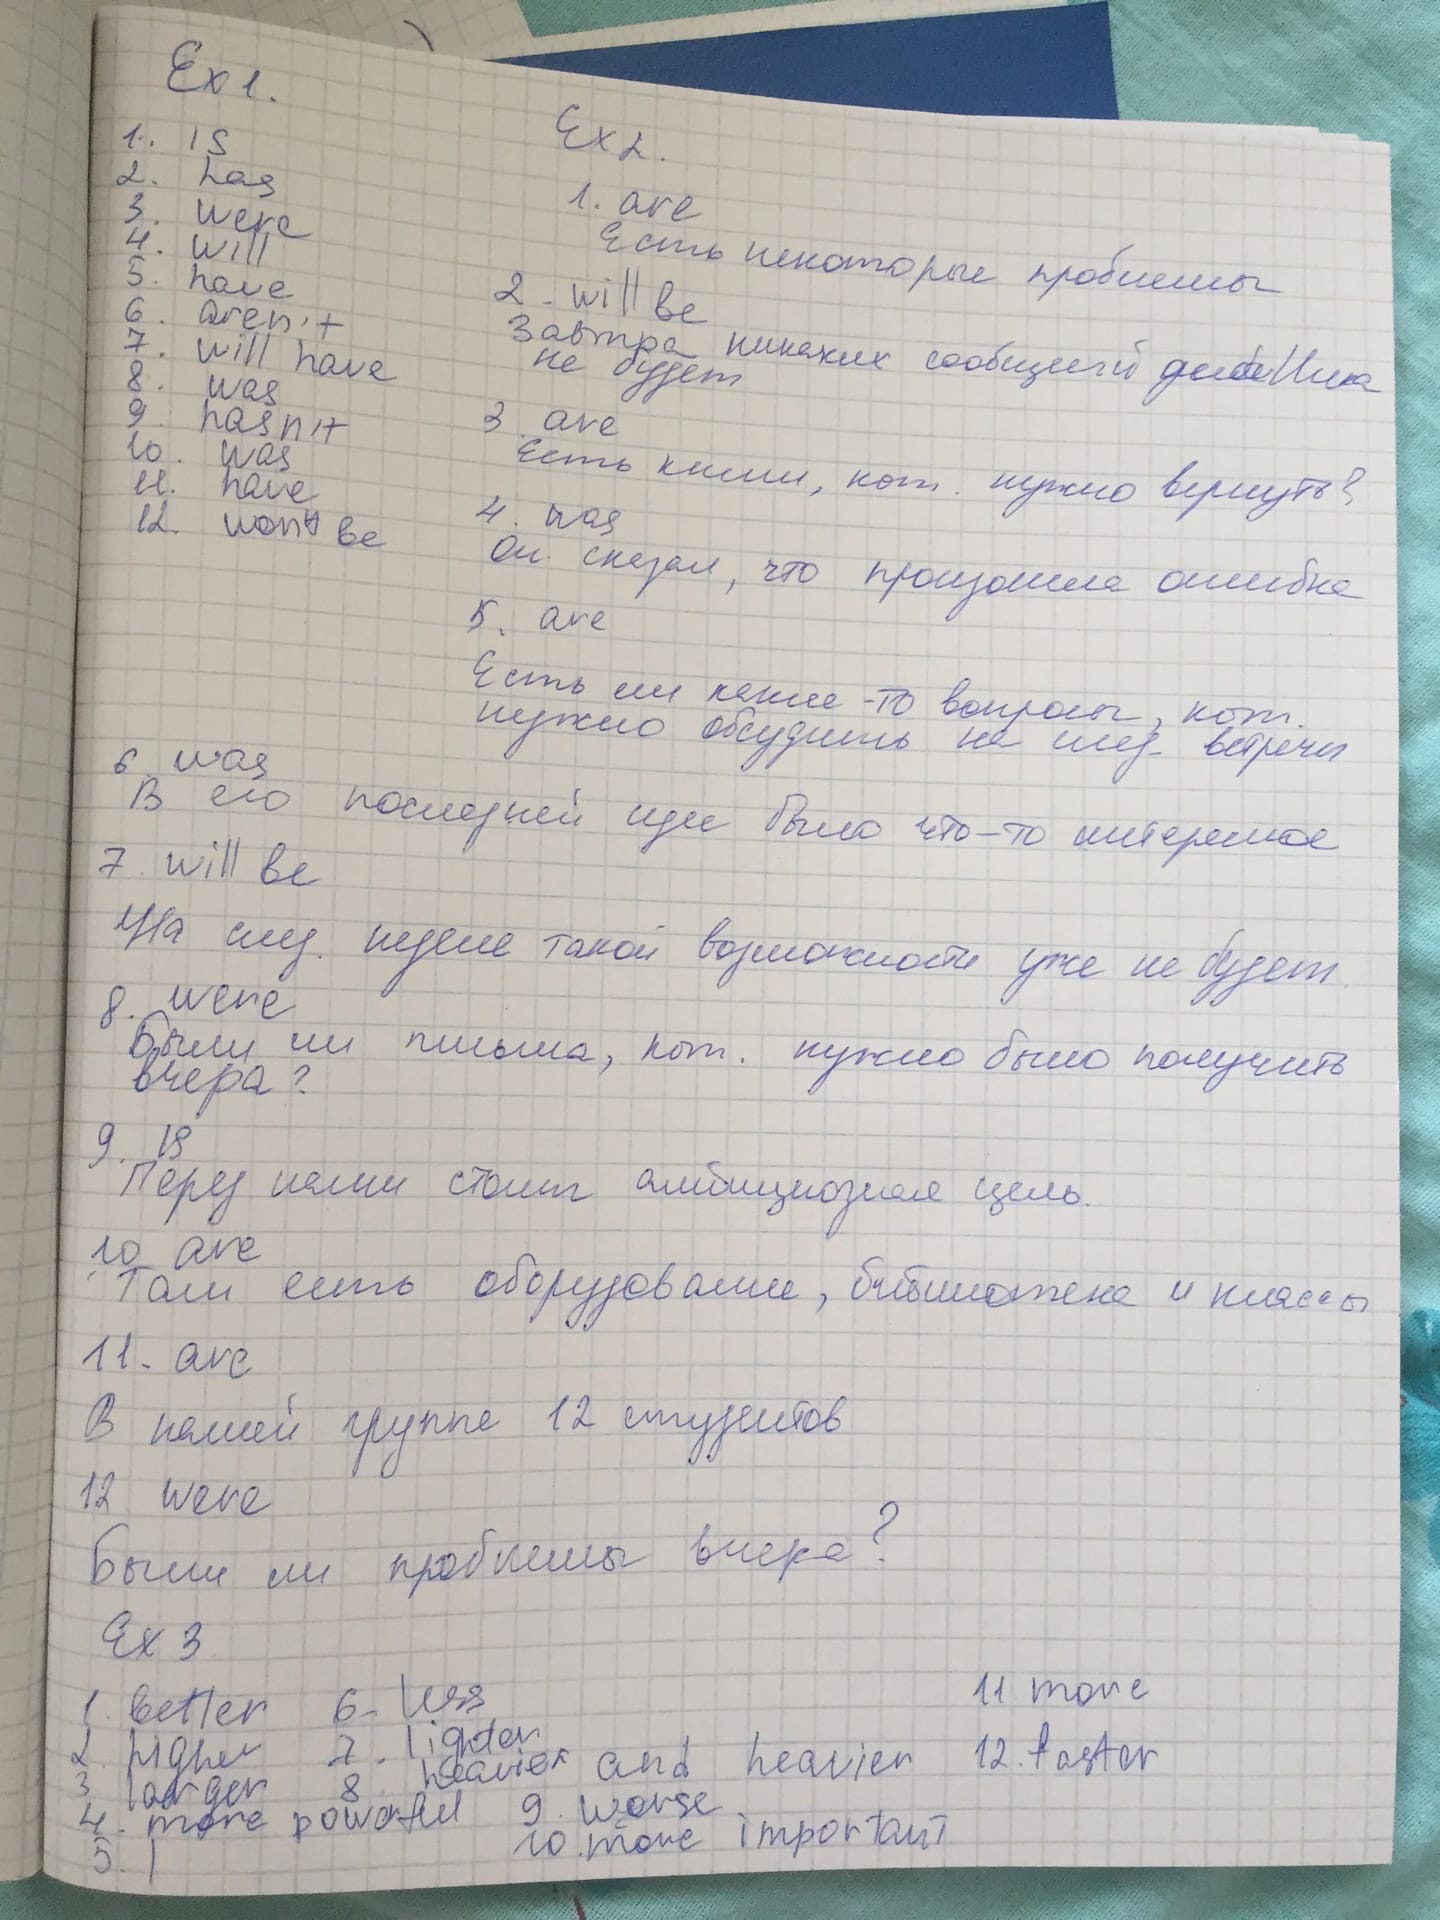 Ex 1.
1. is
2. has
3. were
4. will
5. have
6. aren't
7. will have
8. was
9. hasn't
10. was
11. have
12. won't be
Ex 2.
1. are
Есть некоторые проблемы
2. will be
Завтра никаких сообщений для Ника
не будет
3. are
Есть книги, кот. нужно вернуть?
4. was
Он сказал, что произошла ошибка
5. are
Есть ли какие-то вопросы, кот.
нужно обсудить на след. встречи
6. was
В его последней идее было что-то интересное
7. will be
На след. неделе такой возможности уже не будет.
8. were
Были ли письма, кот. нужно было получить
вчера?
9. is
Перед нами стоит амбициозная цель.
10 are
Там есть оборудование, библиотека и классы
11. are
В нашей группе 12 студентов
12 were
Были ли проблемы вчера?
Ex 3
1. better
2. higher
3 larger
4. more powerful
5.
6. less
7. lighter
8. heavier and heavier
9. worse
10. more important
11 more
12. faster